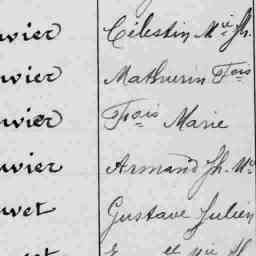 uvier Célestin Mie Jh.
uvier Mathurin Fois
uvier Fois Marie
uvier Armand Jh. Mie
uvet Gustave Julien